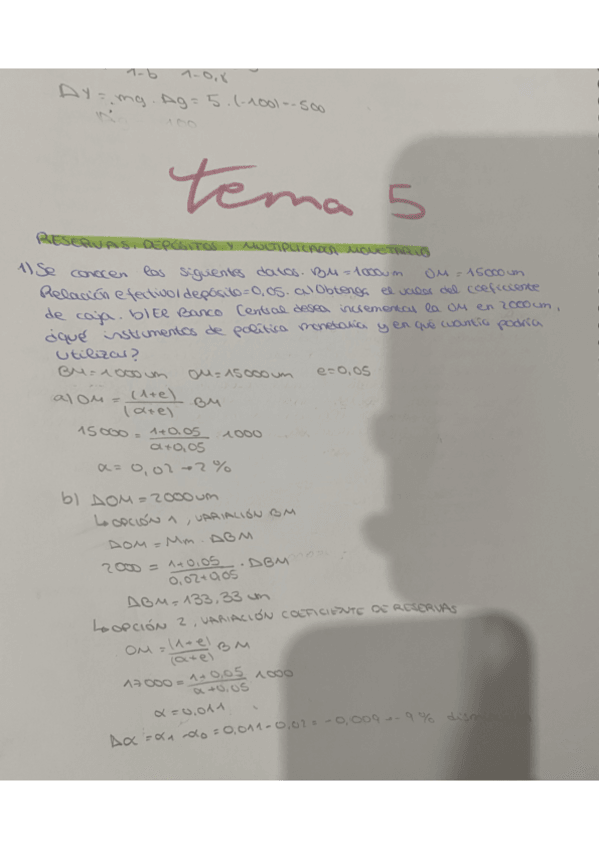 1-b 1-0,8
ΔY = mg · Δg = 5 · (-100) = -500
tema 5
RESERVAS, DEPÓSITOS Y MULTIPLICADOR MONETARIO
1) Se conocen los siguientes datos. BM = 1000um OM = 15000um
Relación efectivo/depósito = 0,05. a) Obtenga el valor del coeficiente
de caja. b) El Banco Central desea incrementar la OM en 2000um,
¿qué instrumentos de política monetaria y en qué cuantía podría
utilizar?
BM = 1000um OM = 15000um e = 0,05
a) OM = (1+e)/(α+e) · BM
15000 = 1+0,05/α+0,05 · 1000
α = 0,02 → 2%
b) ΔOM = 2000um
↳ OPCIÓN 1, VARIACIÓN BM
ΔOM = Mm · ΔBM
2000 = 1+0,05/0,02+0,05 · ΔBM
ΔBM = 133,33 um
↳ OPCIÓN 2, VARIACIÓN COEFICIENTE DE RESERVAS
OM = (1+e)/(α+e) BM
17000 = 1+0,05/α+0,05 1000
α = 0,011
Δα = α1 - α0 = 0,011 - 0,02 = -0,009 → -9%